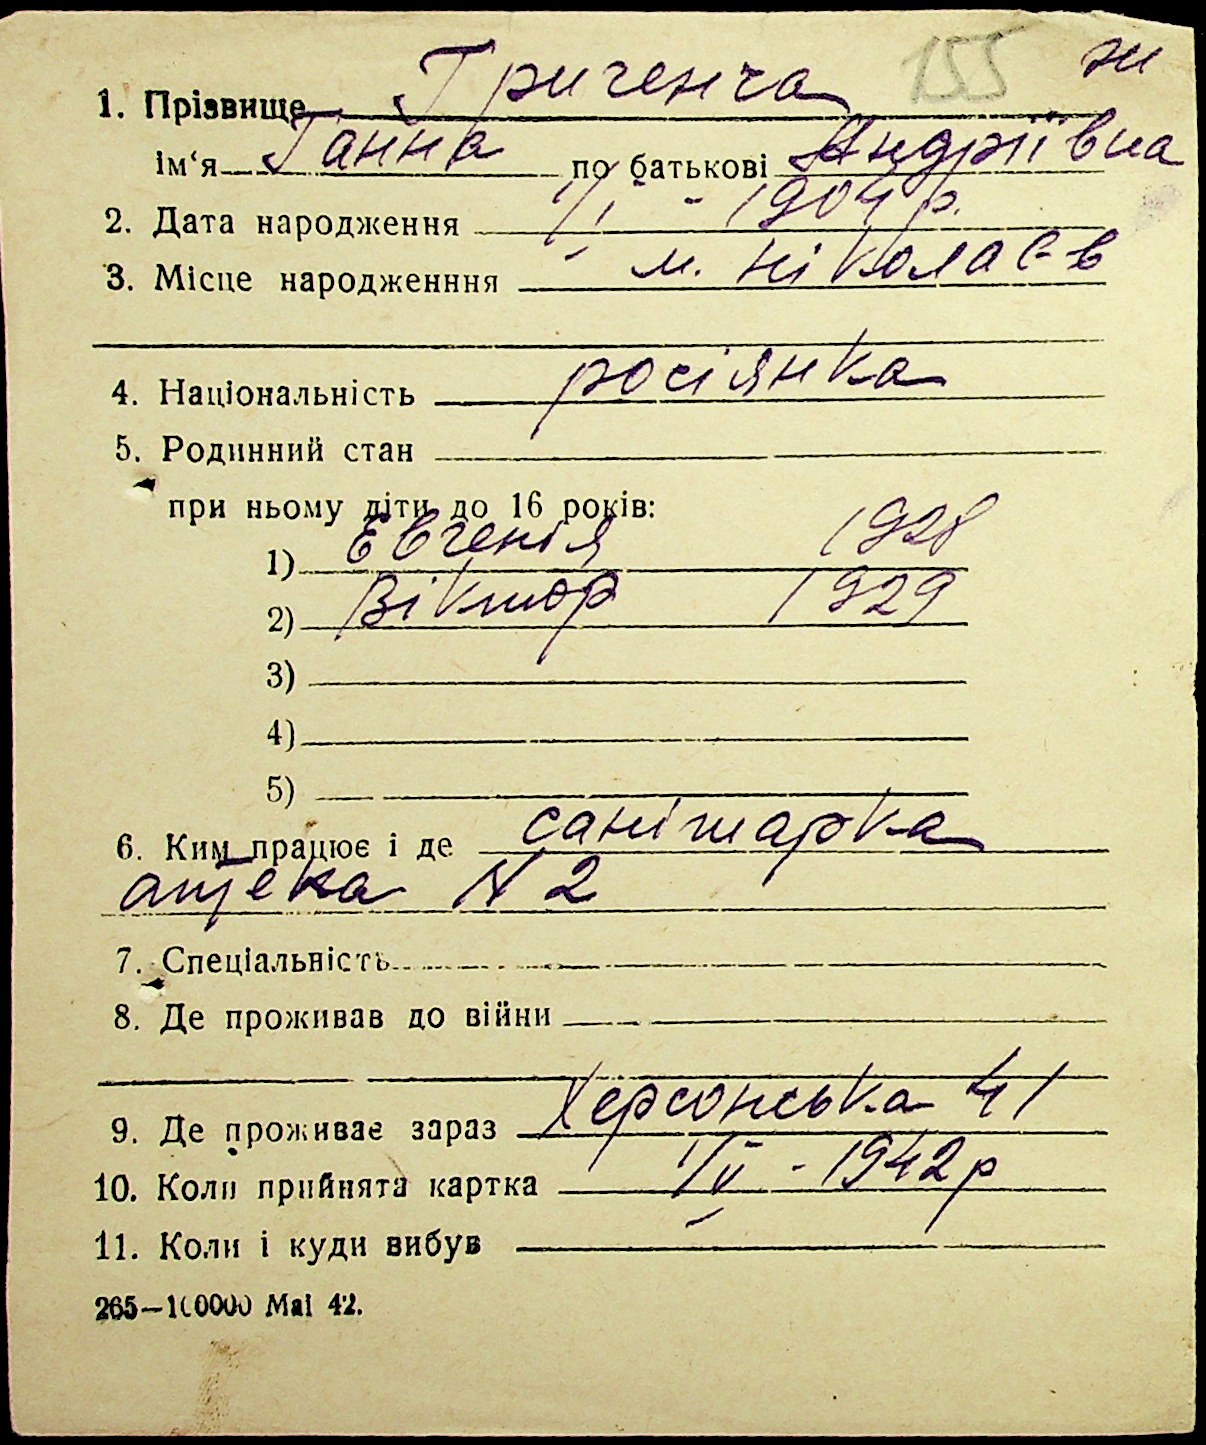 155 ж
1. Прізвище Григенча
ім‘я Ганна по батькові Андріївна
2. Дата народження VI - 1904 р.
3. Місце народженння м. Ніколаєв
4. Національність росіянка
5. Родинний стан
при ньому діти до 16 років:
1) Евгенія 1928
2) Віктор 1929
3)
4)
5)
6. Ким працює і де санітарка
аптека N 2
7. Спеціальність
8. Де проживав до війни
9. Де проживає зараз Херсонська 41
10. Коли прийнята картка IV - 1942 р
11. Коли і куди вибув
265—100000 Mai 42.